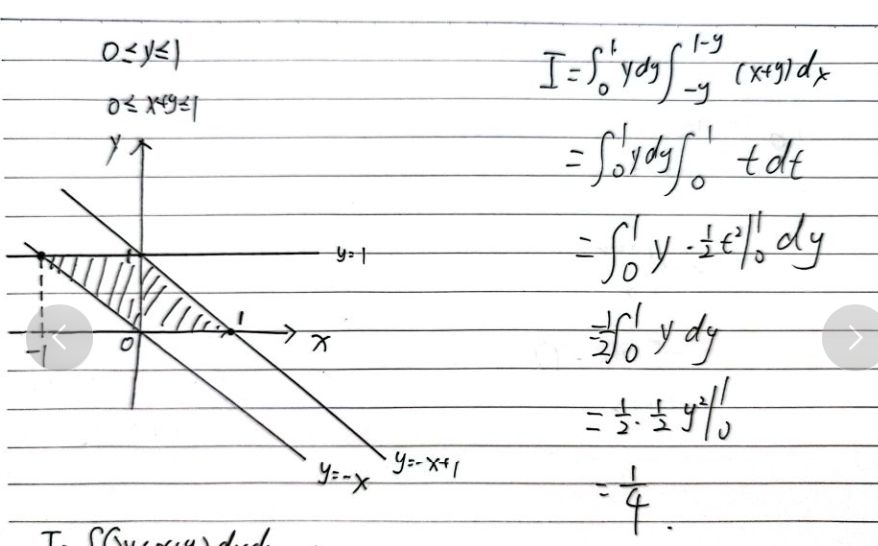 0≤y≤1
0≤x+y≤1
y
y=1
1
1
-1
0
x
y=-x
y=-x+1
I=∫₀¹ydy∫₋y¹⁻ʸ(x+y)dx
=∫₀¹ydy∫₀¹tdt
=∫₀¹y·½t²|₀¹dy
=½∫₀¹ydy
=½·½y²|₀¹
=¼.